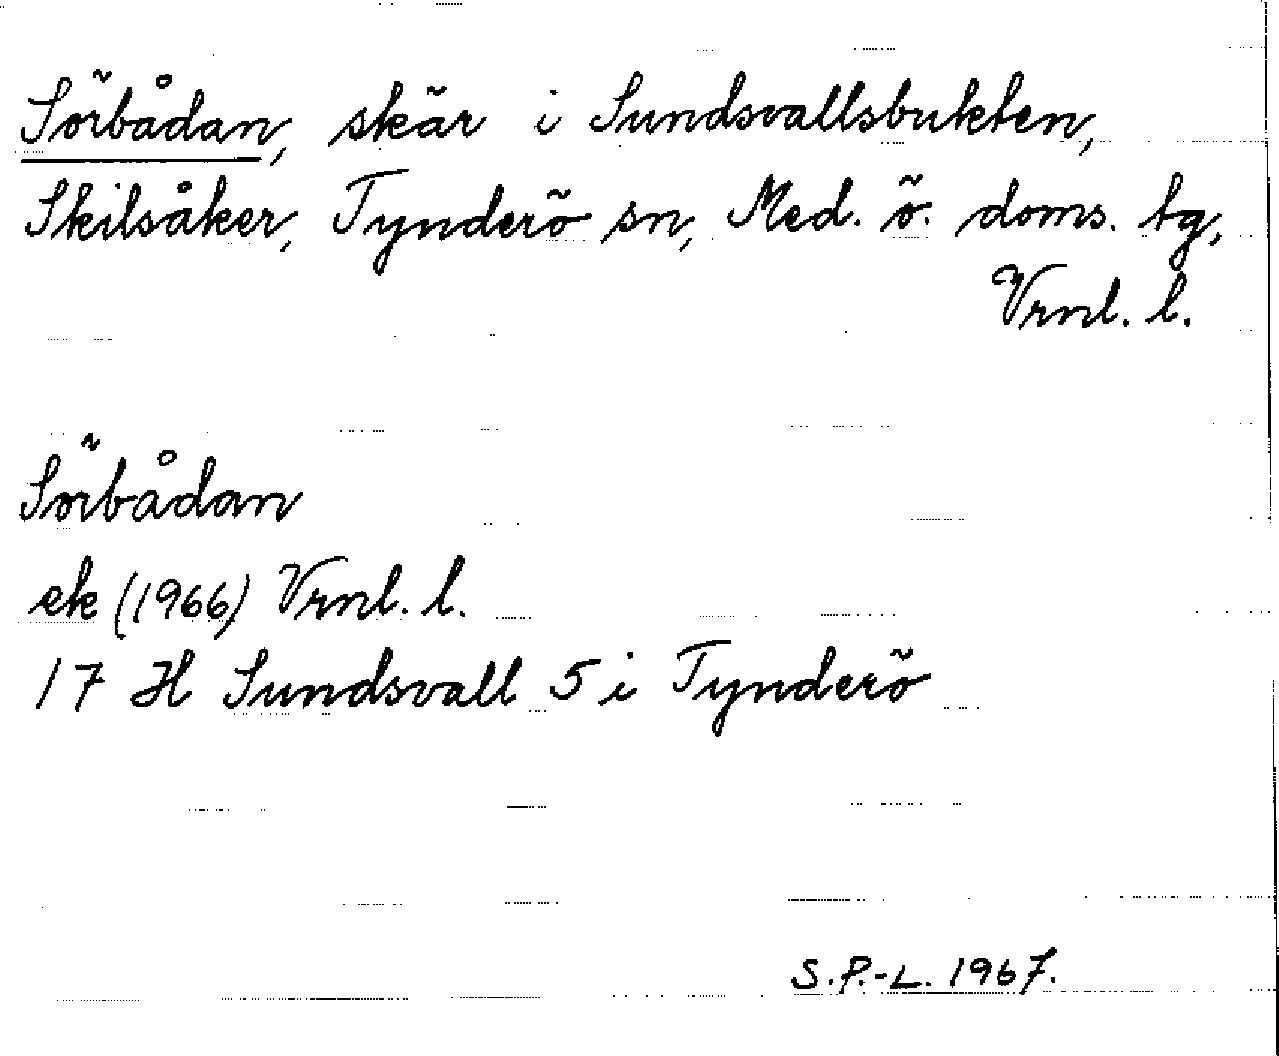 Sörbådan, skär i Sundsvallsbukten,
Skilsåker, Tynderö sn, Med. ö. doms. tg,
Vrnl. l.
Sörbådan
ek (1966) Vrnl. l.
17 H Sundsvall 5 i Tynderö
S.P.-L. 1967.